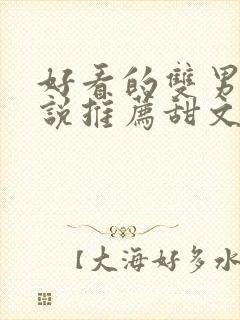 好看的雙男
說推薦甜文
【大海好多水